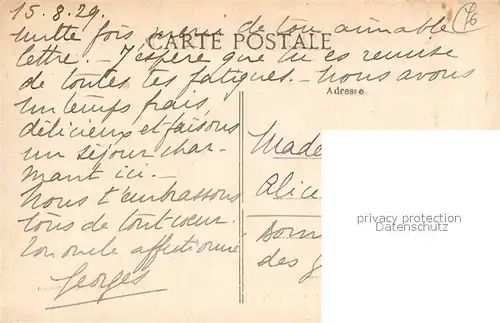 15.8.29.
mille fois merci de ton aimable
CARTE POSTALE
lettre. – J'espère que tu es remise
de toutes tes fatigues. – Nous avons
un temps frais,
délicieux et faisons
un séjour char-
mant ici. –
Nous t'embrassons
tous de tout cœur.
Ton oncle affectionné
Georges
76
Adresse
Made
Alice
des
privacy protection
Datenschutz